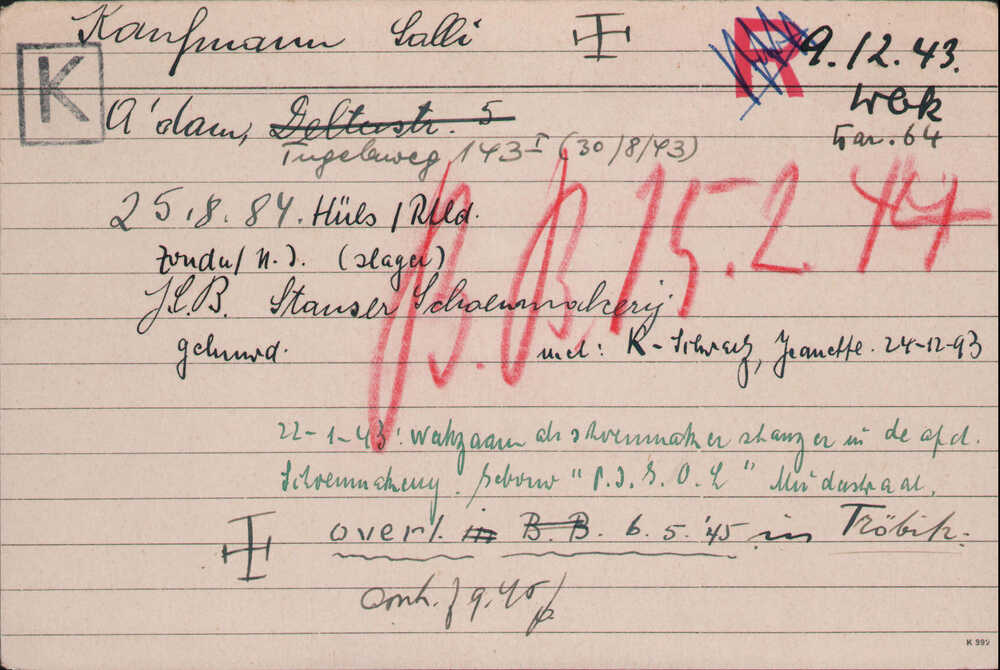 Kaufmann Salli R 9.12.43.
K Wbk
A'dam, Deltastr. 5 Bar. 64
Tugelaweg 143 I (30/8/43)
25.8.84. Hüls / Rhld.
B.B. 15.2.44
(slager)
Stanser Schoenmakerij
gehuwd. met: K-Schwarz, Jeanette. 24-12-93
22-1-43: werkzaam als schoenmaker stanzer in de afd.
Schoenmakerij. gebouw
overl. in B.B. 6.5.'45 in Tröbitz.
K 992